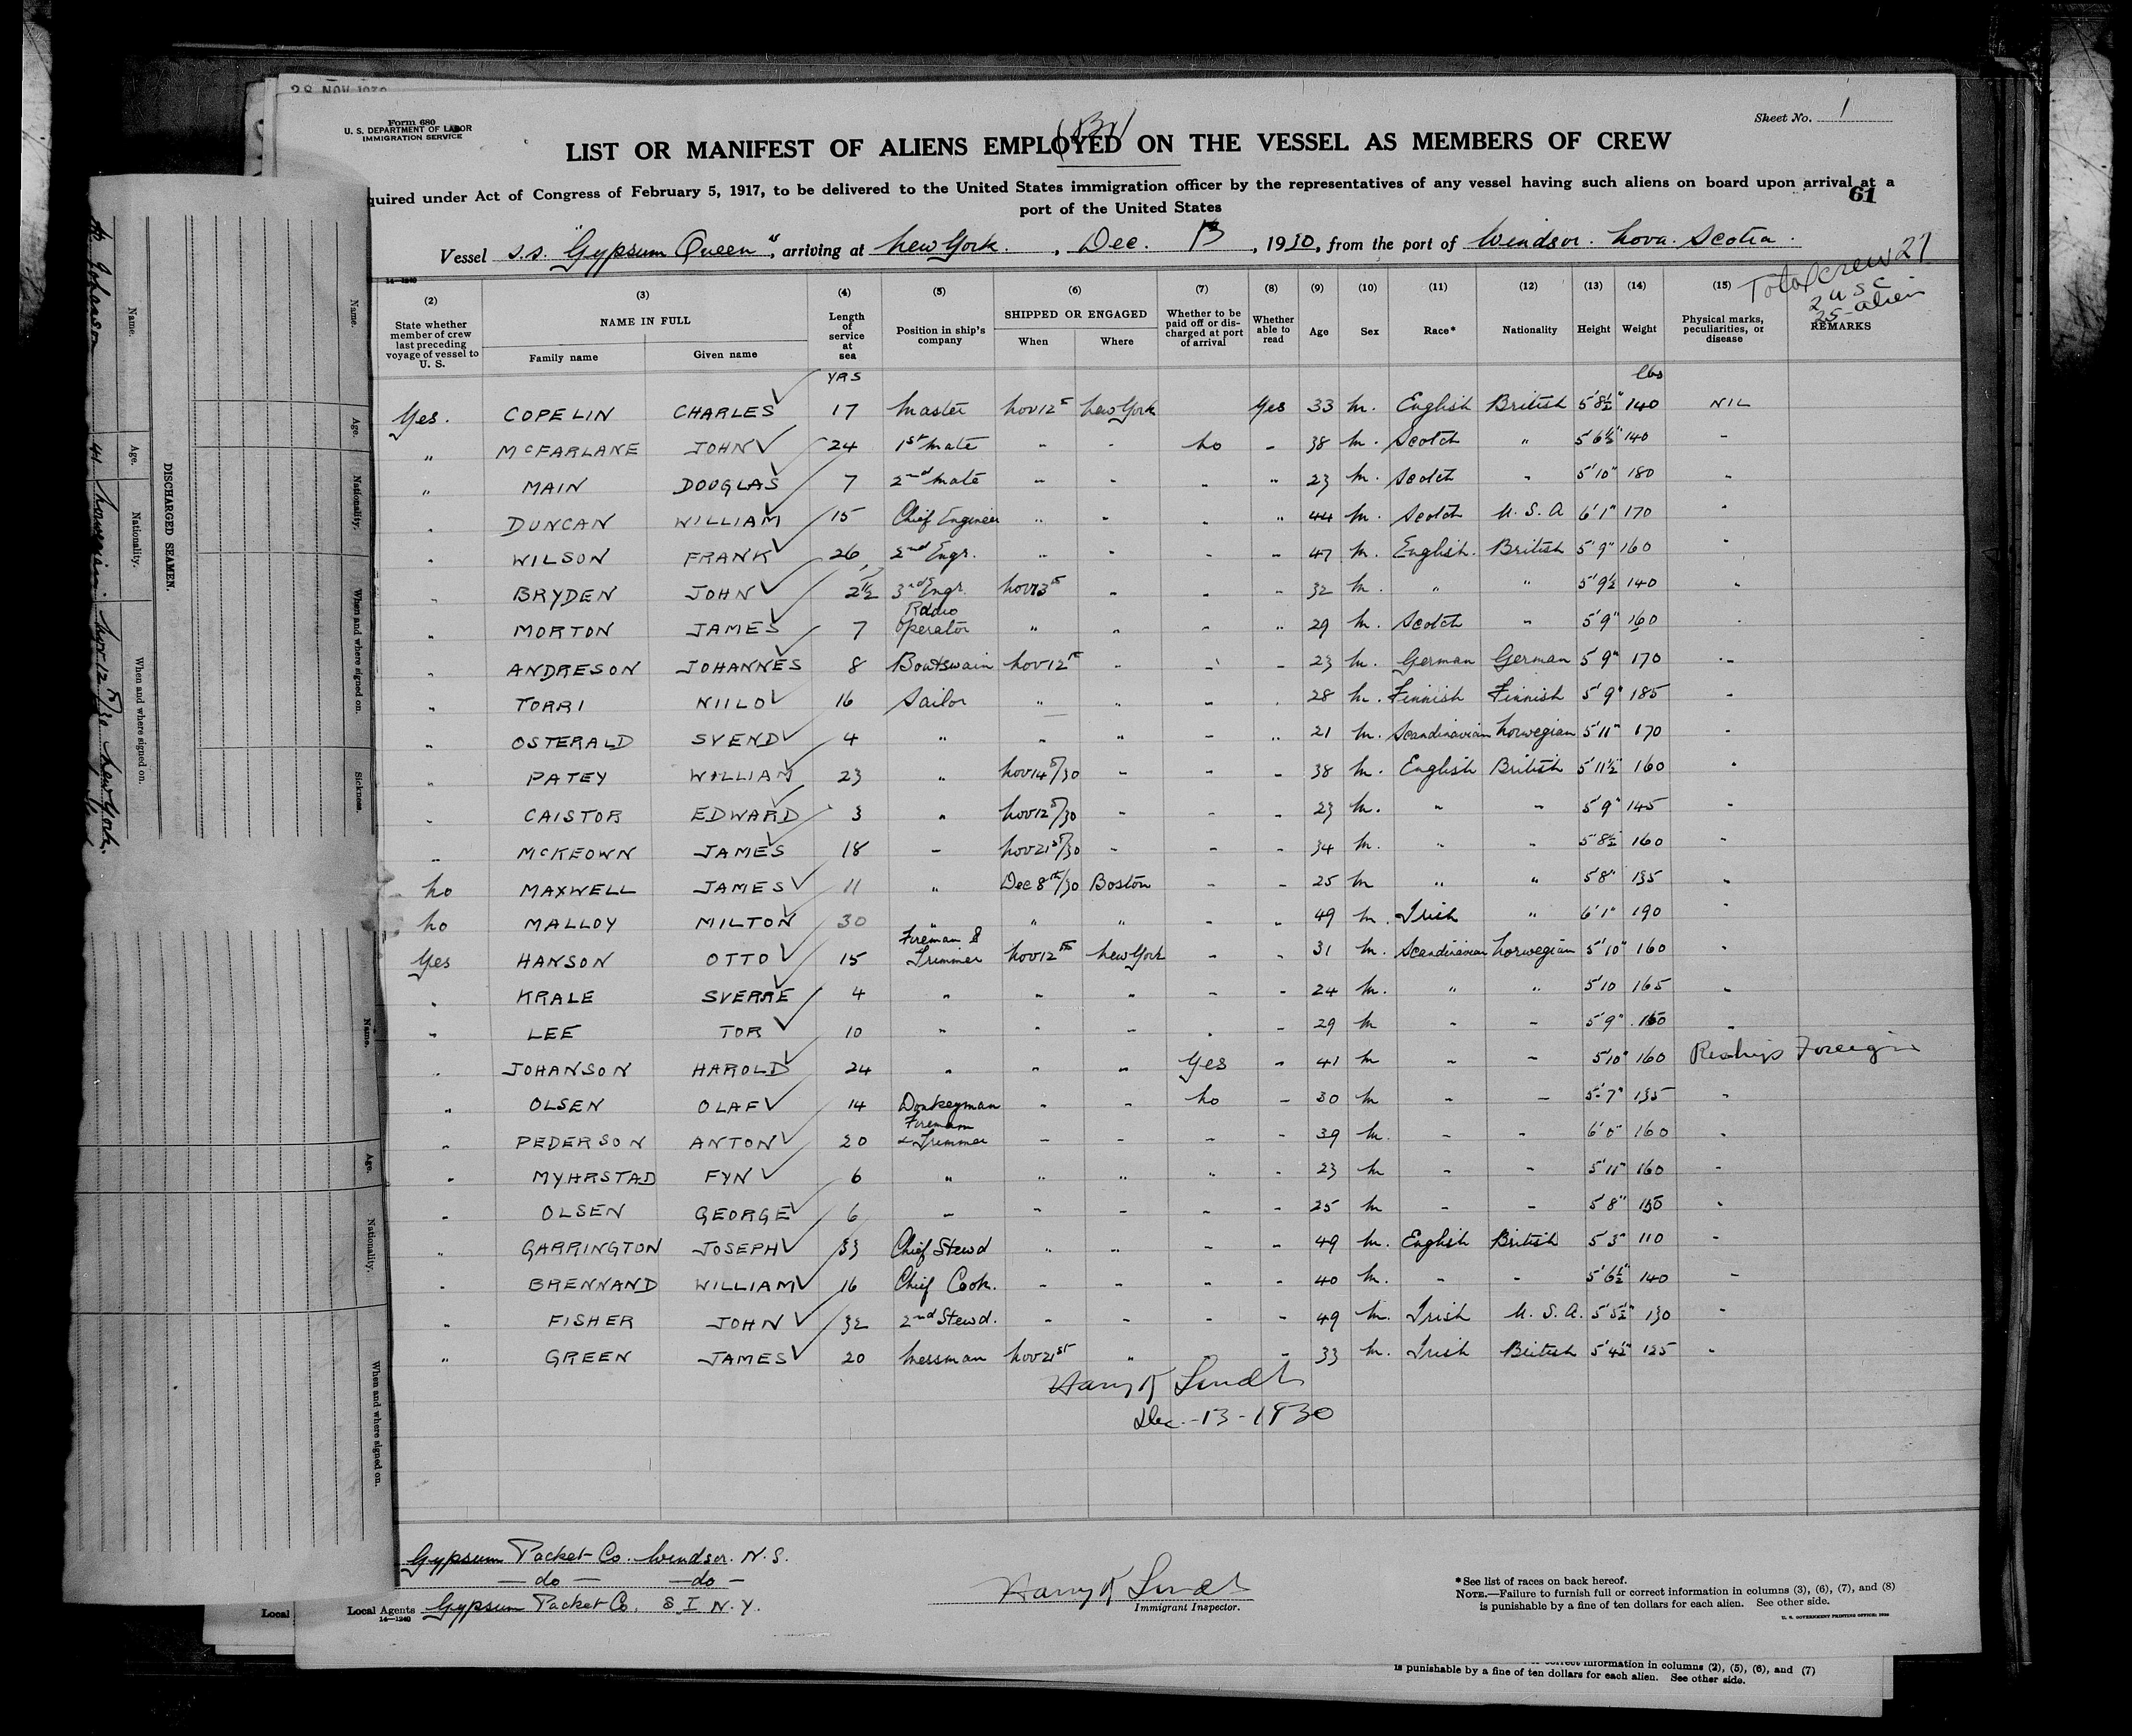 28 NOV 1930
Form 680
U. S. DEPARTMENT OF LABOR
IMMIGRATION SERVICE
Sheet No. 1
LIST OR MANIFEST OF ALIENS EMPLOYED ON THE VESSEL AS MEMBERS OF CREW
quired under Act of Congress of February 5, 1917, to be delivered to the United States immigration officer by the representatives of any vessel having such aliens on board upon arrival at a
port of the United States
61
Vessel S.S. "Gypsum Queen", arriving at New York, Dec. 13, 1930, from the port of Windsor. Nova. Scotia.
Total crew 27
2 USC
25 alien
14—1240
(2) (3) (4) (5) (6) (7) (8) (9) (10) (11) (12) (13) (14) (15)
State whether member of crew last preceding voyage of vessel to U. S. NAME IN FULL Family name Given name Length of service at sea Position in ship's company SHIPPED OR ENGAGED When Where Whether to be paid off or discharged at port of arrival Whether able to read Age Sex Race* Nationality Height Weight Physical marks, peculiarities, or disease REMARKS
YRS lbs
Yes. COPELIN CHARLES 17 Master Nov 12th New York Yes 33 M. English British 5'8½" 140 NIL
" McFARLANE JOHN 24 1st Mate " " No " 38 M. Scotch " 5'6½" 140 "
" MAIN DOUGLAS 7 2nd Mate " " " " 23 M. Scotch " 5'10" 180 "
" DUNCAN WILLIAM 15 Chief Engineer " " " " 44 M. Scotch U. S. A 6'1" 170 "
" WILSON FRANK 26 2nd Engr. " " " " 47 M. English. British 5'9" 160 "
" BRYDEN JOHN 2½ 3rd Engr. Nov 13th " " " 32 M. " " 5'9½ 140 "
" MORTON JAMES 7 Radio Operator " " " " 29 M. Scotch " 5'9" 160 "
" ANDRESON JOHANNES 8 Boatswain Nov 12th " " " 23 M. German German 5'9" 170 "
" TORRI NIILO 16 Sailor " " " " 28 M. Finnish Finnish 5'9" 185 "
" OSTERALD SVEND 4 " " " " " 21 M. Scandinavian Norwegian 5'11" 170 "
" PATEY WILLIAM 23 " Nov 14th/30 " " " 38 M. English British 5'11½ 160 "
" CAISTOR EDWARD 3 " Nov 12th/30 " " " 23 M. " " 5'9" 145 "
" McKEOWN JAMES 18 " Nov 21st/30 " " " 34 M. " " 5'8½ 160 "
No MAXWELL JAMES 11 " Dec 8th/30 Boston " " 25 M " " 5'8" 135 "
No MALLOY MILTON 30 " " " " " 49 M. Irish " 6'1" 190 "
Yes HANSON OTTO 15 Fireman & Trimmer Nov 12th New York " " 31 M. Scandinavian Norwegian 5'10" 160 "
" KRALE SVERRE 4 " " " " " 24 M. " " 5'10 165 "
" LEE TOR 10 " " " " " 29 M " " 5'9" 160 "
" JOHANSON HAROLD 24 " " " Yes " 41 M " " 5'10" 160 Reships Foreign
" OLSEN OLAF 14 Donkeyman " " No " 30 M " " 5'7" 135 "
" PEDERSON ANTON 20 Fireman & Trimmer " " " " 39 M. " " 6'0" 160 "
" MYHRSTAD FYN 6 " " " " " 23 M " " 5'11" 160 "
" OLSEN GEORGE 6 " " " " " 25 M " " 5'8" 150 "
" GARRINGTON JOSEPH 33 Chief Stewd " " " " 49 M. English British 5'3" 110 "
" BRENNAND WILLIAM 16 Chief Cook. " " " " 40 M. " " 5'6½" 140 "
" FISHER JOHN 32 2nd Stewd. " " " " 49 M. Irish U. S. A. 5'5½" 130 "
" GREEN JAMES 20 Messman Nov 21st " " " 33 M. Irish British 5'4½" 125 "
Dec-13-1930
Gypsum Packet Co. Windsor. N.S.
— do — — do —
Local Agents Gypsum Packet Co. S I N.Y.
14—1240
Immigrant Inspector.
*See list of races on back hereof.
NOTE.—Failure to furnish full or correct information in columns (3), (6), (7), and (8)
is punishable by a fine of ten dollars for each alien. See other side.
U. S. GOVERNMENT PRINTING OFFICE: 1930
Local
correct information in columns (2), (5), (6), and (7)
is punishable by a fine of ten dollars for each alien. See other side.
DISCHARGED SEAMEN.
Name. Age. Nationality. When and where signed on.
H. Johanson 41 Norwegian Nov 12th/30 New York.
Name. Age. Nationality. When and where signed on. Sickness.
Name. Age. Nationality. When and where signed on.